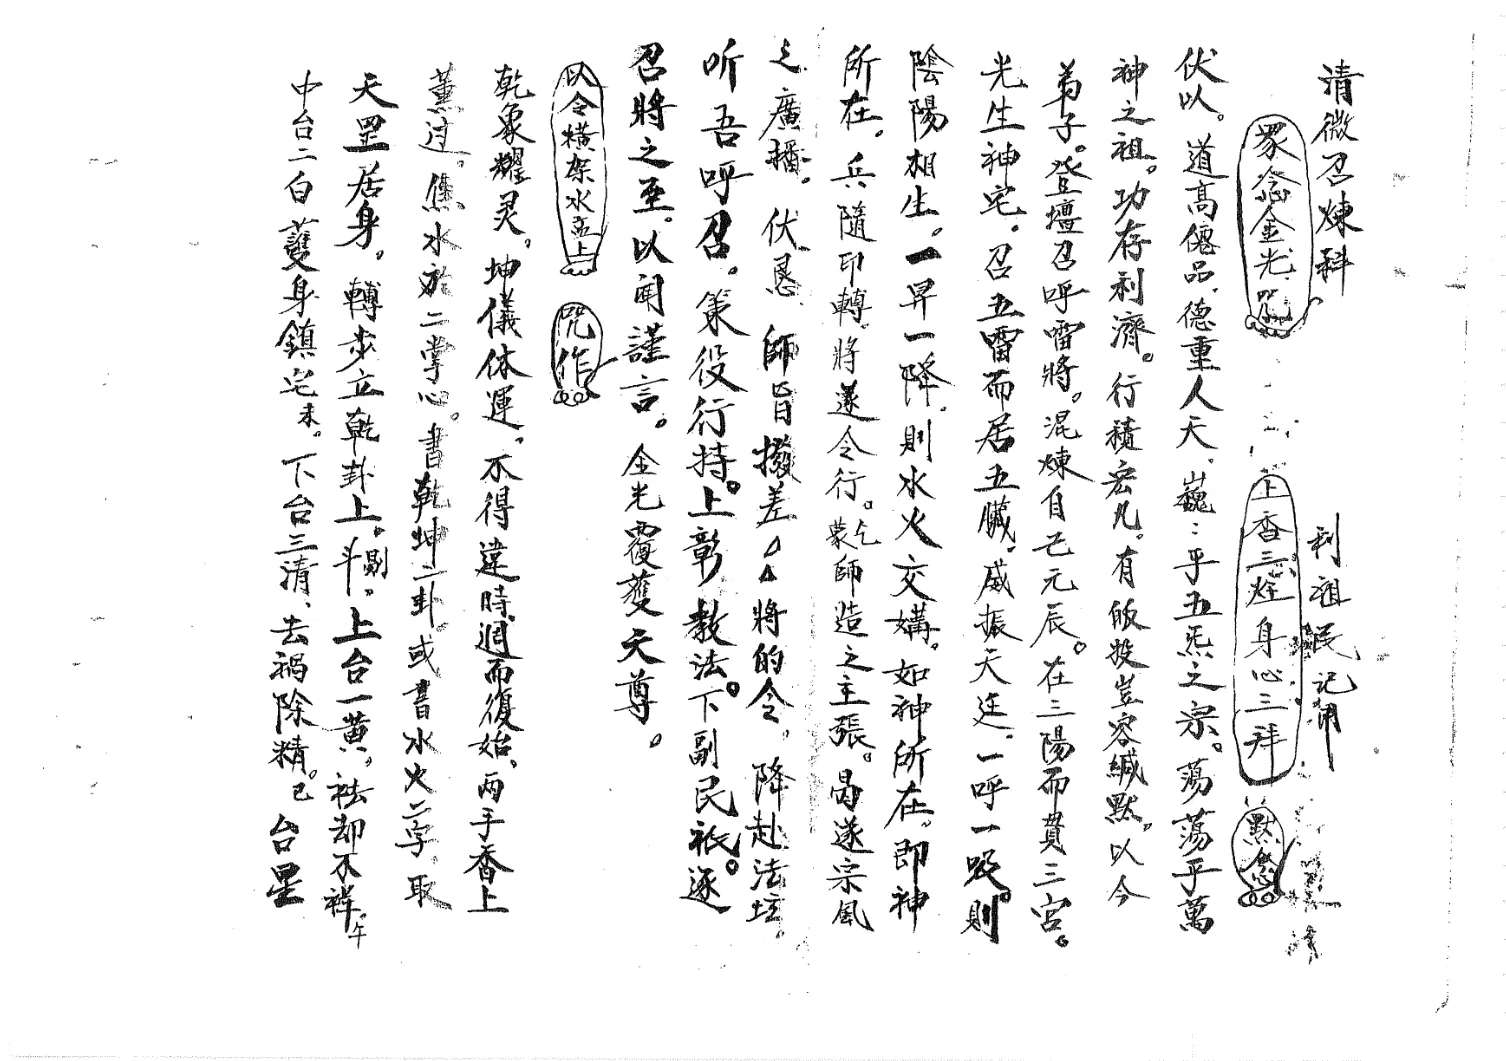 清微召煉科 利祖民記用
眾念金光咒 上香三炷身心三拜 默念
伏以。道高僊品。德重人天。巍：乎五炁之宗。蕩蕩乎萬
神之祖。功存利濟。行積宏凡。有皈投豈容緘默。以今
弟子。登壇召呼雷將。混煉自己元辰。在三陽而貫三宮。
光生神宅。召五雷而居五臟。威振天廷。一呼一吸。則
陰陽相生。一昇一降。則水火交媾。如神所在。即神
所在。兵隨印轉。將遂令行。乞蒙師造之主張。曷遂宗風
之廣播。伏恳 師旨撥差△△將的令。降赴法坛。
听吾呼召。策役行持。上彰教法。下副民祇。逐
召將之至。以闻謹言。 金光覆護天尊。
以令橫架水盂上 咒作
乾象耀灵。坤儀体運。不得違時。週而復始。两手香上
薰过。焦水於二掌心。書乾坤二卦或書水火二字取
天罡居身。轉步立乾卦上。剔斗。上台一黄。祛却不祥。午
中台二白護身鎮宅未。下台三清、去祸除精。巳 台星